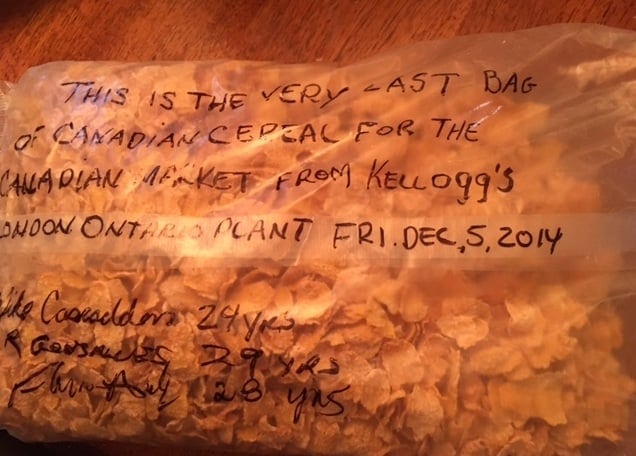 THIS IS THE VERY LAST BAG
OF CANADIAN CEREAL FOR THE
CANADIAN MARKET FROM KELLOgg'S
LONDON ONTARIO PLANT FRI. DEC, 5, 2014
24 yrs
R 29 yrs
28 yrs